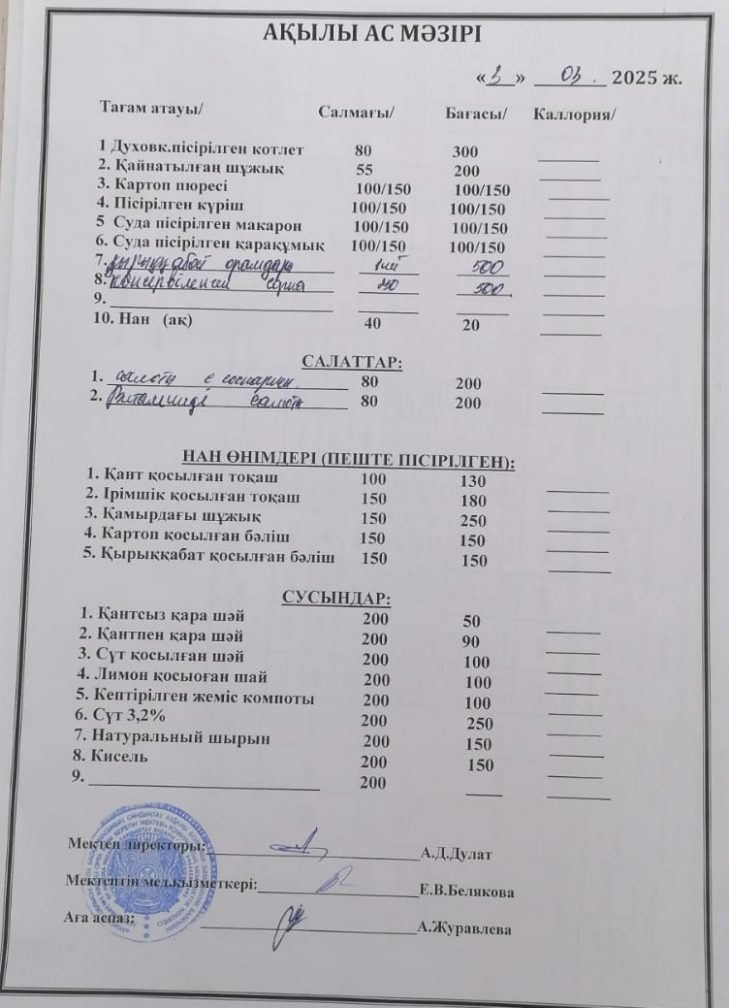 АҚЫЛЫ АС МӘЗІРІ
«3» 03. 2025 ж.
Тағам атауы/ Салмағы/ Бағасы/ Каллория/
1 Духовк.пісірілген котлет 80 300
2. Қайнатылған шұжық 55 200
3. Картоп пюресі 100/150 100/150
4. Пісірілген күріш 100/150 100/150
5 Суда пісірілген макарон 100/150 100/150
6. Суда пісірілген қарақұмық 100/150 100/150
7. 500
8. 500
9.
10. Нан (ақ) 40 20
САЛАТТАР:
1. 80 200
2. 80 200
НАН ӨНІМДЕРІ (ПЕШТЕ ПІСІРІЛГЕН):
1. Қант қосылған тоқаш 100 130
2. Ірімшік қосылған тоқаш 150 180
3. Қамырдағы шұжық 150 250
4. Картоп қосылған бәліш 150 150
5. Қырыққабат қосылған бәліш 150 150
СУСЫНДАР:
1. Қантсыз қара шәй 200 50
2. Қантпен қара шәй 200 90
3. Сүт қосылған шәй 200 100
4. Лимон қосыоған шай 200 100
5. Кептірілген жеміс компоты 200 100
6. Сүт 3,2% 200 250
7. Натуральный шырын 200 150
8. Кисель 200 150
9. 200
Мектеп директоры: А.Д.Дулат
Мектептің мед.қызметкері: Е.В.Белякова
Аға аспаз: А.Журавлева